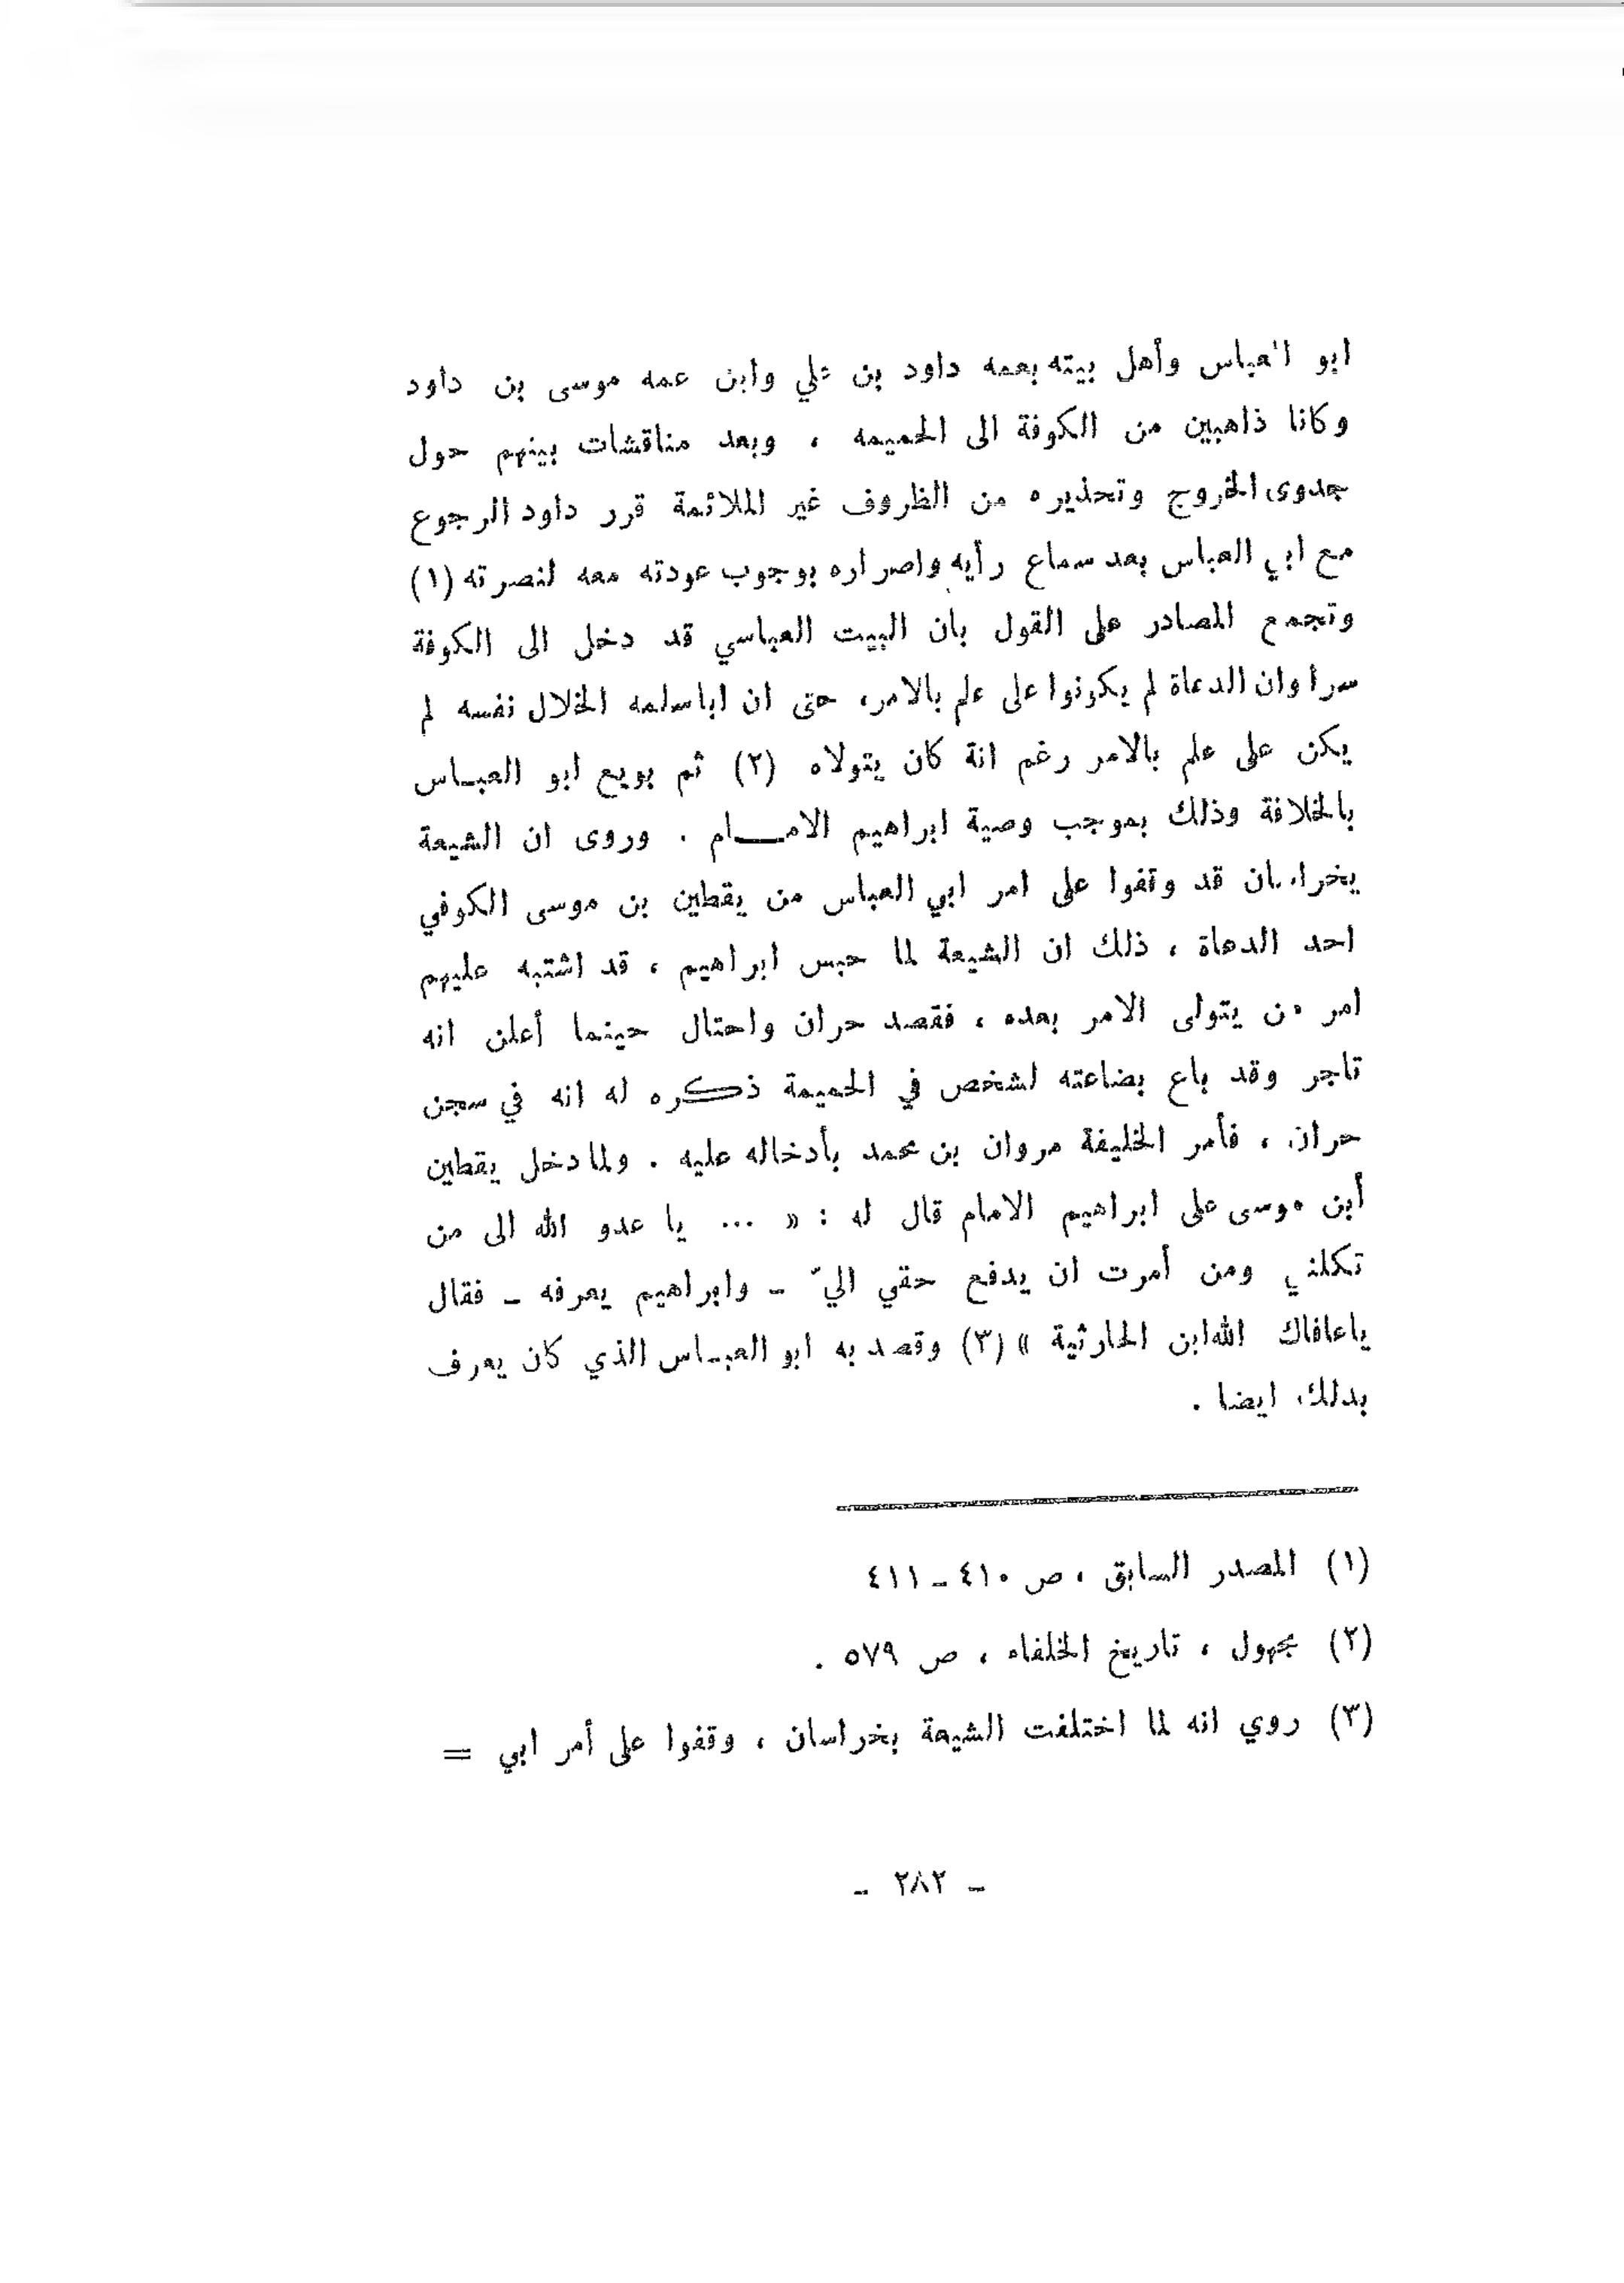 ابو العباس وأهل بيته بعمه داود بن علي وابن عمه موسى بن داود
وكانا ذاهبين من الكوفة الى الحميمه ، وبعد مناقشات بينهم حول
جدوى الخروج وتحذيره من الظروف غير الملائمة قرر داود الرجوع
مع ابي العباس بعد سماع رأيه واصراره بوجوب عودته معه لنصرته (١)
وتجمع المصادر على القول بأن البيت العباسي قد دخل الى الكوفة
سرا وان الدعاة لم يكونوا على علم بالامر، حتى ان اباسلمه الخلال نفسه لم
يكن على علم بالامر رغم انة كان يتولاه (٢) ثم بويع ابو العبـاس
بالخلافة وذلك بموجب وصية ابراهيم الامـــام . وروى ان الشيعة
بخراسان قد وقفوا على امر ابي العباس من يقطين بن موسى الكوفي
احد الدعاة ، ذلك ان الشيعة لما حبس ابراهيم ، قد اشتبه عليهم
امر من يتولى الامر بعده ، فقصد حران واحتال حينما أعلن انه
تاجر وقد باع بضاعته لشخص في الحميمة ذكره له انه في سجن
حران ، فأمر الخليفة مروان بن محمد بأدخاله عليه . ولما دخل يقطين
أبن موسى على ابراهيم الامام قال له : « ... يا عدو الله الى من
تكلني ومن أمرت ان يدفع حقي اليّ ـ وابراهيم يعرفه ـ فقال
ياعافاك الله ابن الحارثية » (٣) وقصد به ابو العبـاس الذي كان يعرف
بدلك ايضا .
(١) المصدر السابق ، ص ٤١٠ ـ ٤١١
(٢) مجهول ، تاريخ الخلفاه ، ص ٥٧٩ .
(٣) روي انه لما اختلفت الشيعة بخراسان ، وقفوا على أمر ابي =
ـ ٢٨٢ ـ